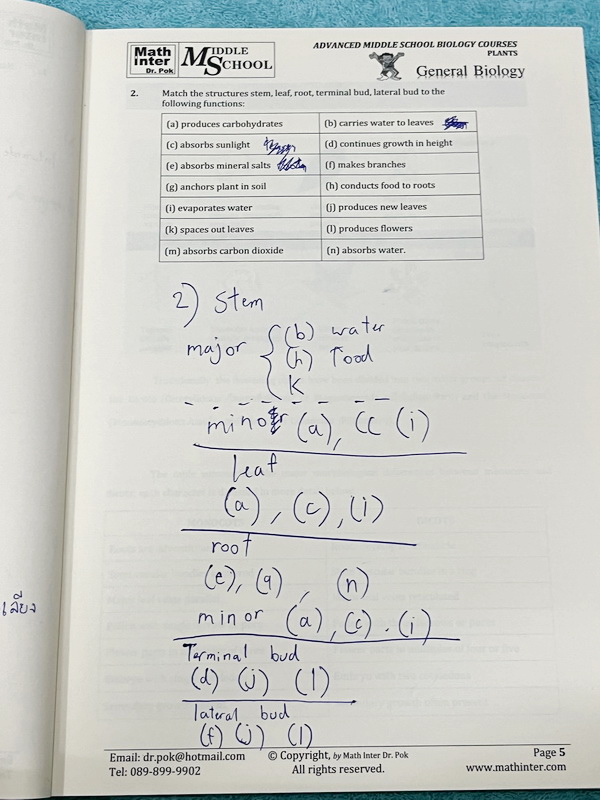 Math
Inter
Dr. Pok
MIDDLE
SCHOOL
ADVANCED MIDDLE SCHOOL BIOLOGY COURSES
PLANTS
General Biology
2. Match the structures stem, leaf, root, terminal bud, lateral bud to the
following functions:
(a) produces carbohydrates (b) carries water to leaves
(c) absorbs sunlight (d) continues growth in height
(e) absorbs mineral salts (f) makes branches
(g) anchors plant in soil (h) conducts food to roots
(i) evaporates water (j) produces new leaves
(k) spaces out leaves (l) produces flowers
(m) absorbs carbon dioxide (n) absorbs water.
2) Stem
major (b) water
(h) Food
K
minor (a), (c (i)
leaf
(a), (c), (i)
root
(e), (g), (n)
minor (a), (c), (i)
Terminal bud
(d) (j) (l)
lateral bud
(f) (j) (l)
เลียง
Email: dr.pok@hotmail.com © Copyright, by Math Inter Dr. Pok Page 5
Tel: 089-899-9902 All rights reserved. www.mathinter.com